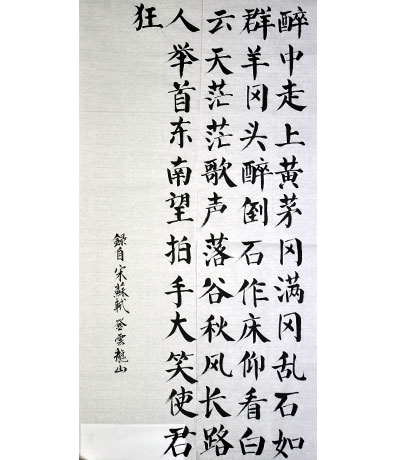 醉中走上黄茅冈满冈乱石如
群羊冈头醉倒石作床仰看白
云天茫茫歌声落谷秋风长路
人举首东南望拍手大笑使君
狂
錄自宋蘇軾登雲龍山